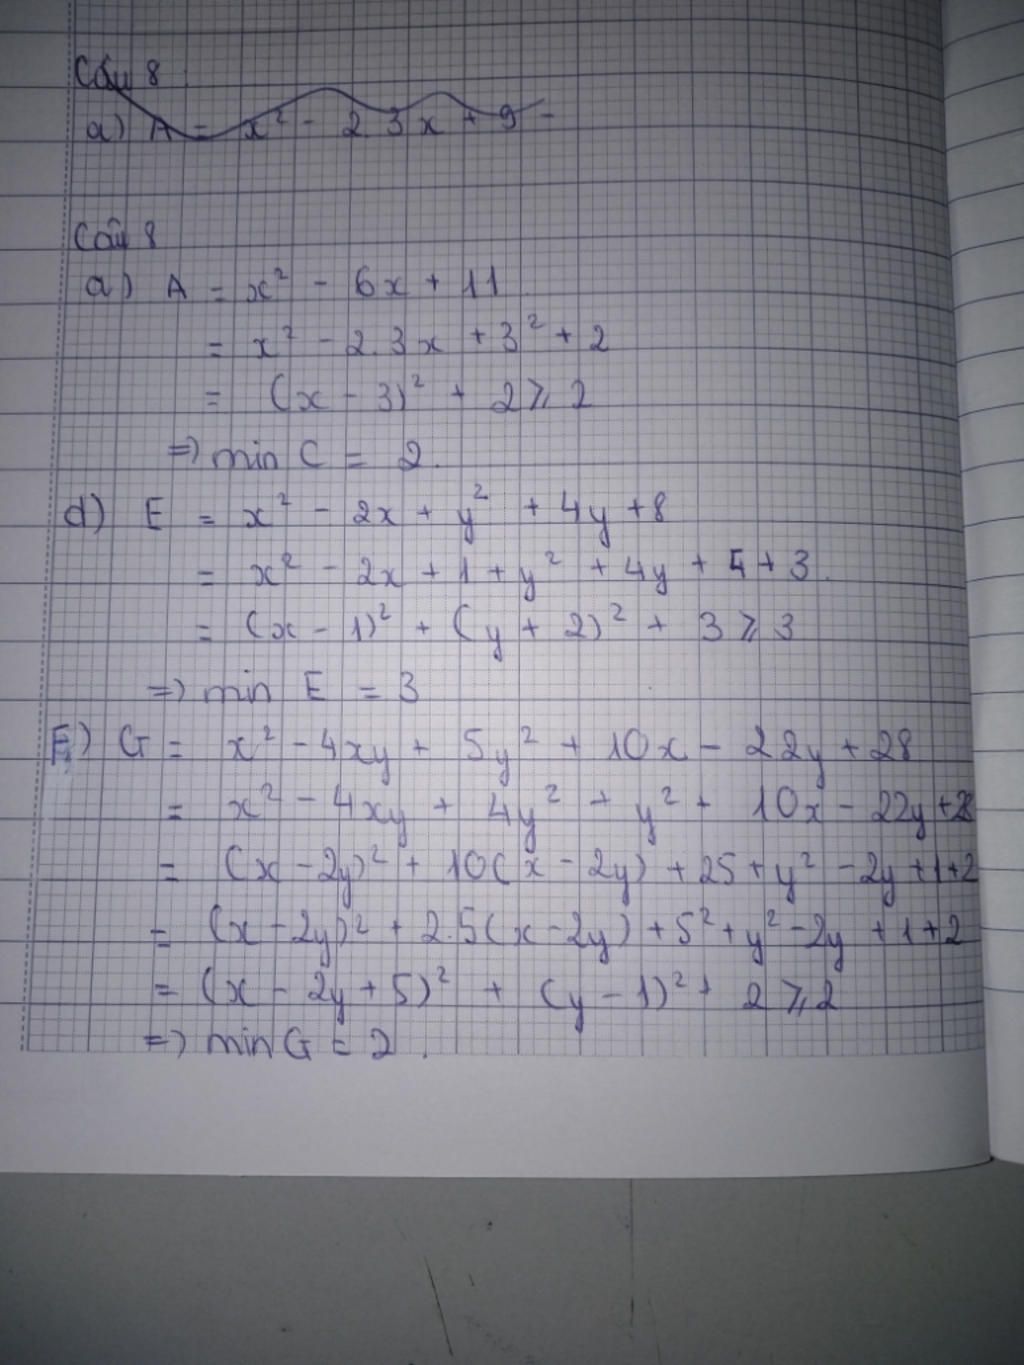 Câu 8
a) A = x² - 2.3x + 9 -
Câu 8
a) A = x² - 6x + 11
= x² - 2.3x + 3² + 2
= (x - 3)² + 2 ⩾ 2
=> min C = 2.
d) E = x² - 2x + y² + 4y + 8
= x² - 2x + 1 + y² + 4y + 4 + 3.
= (x - 1)² + (y + 2)² + 3 ⩾ 3
=> min E = 3
F) G = x² - 4xy + 5y² + 10x - 22y + 28
= x² - 4xy + 4y² + y² + 10x - 22y + 28
= (x - 2y)² + 10(x - 2y) + 25 + y² - 2y + 1 + 2
= (x - 2y)² + 2.5(x - 2y) + 5² + y² - 2y + 1 + 2
= (x - 2y + 5)² + (y - 1)² + 2 ⩾ 2
=> min G = 2.